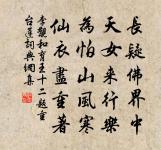 長疑佛界中
天女來行樂
為怕山風寒
仙衣盡重著
李覯和育王十二題重
台蓮詞典網集